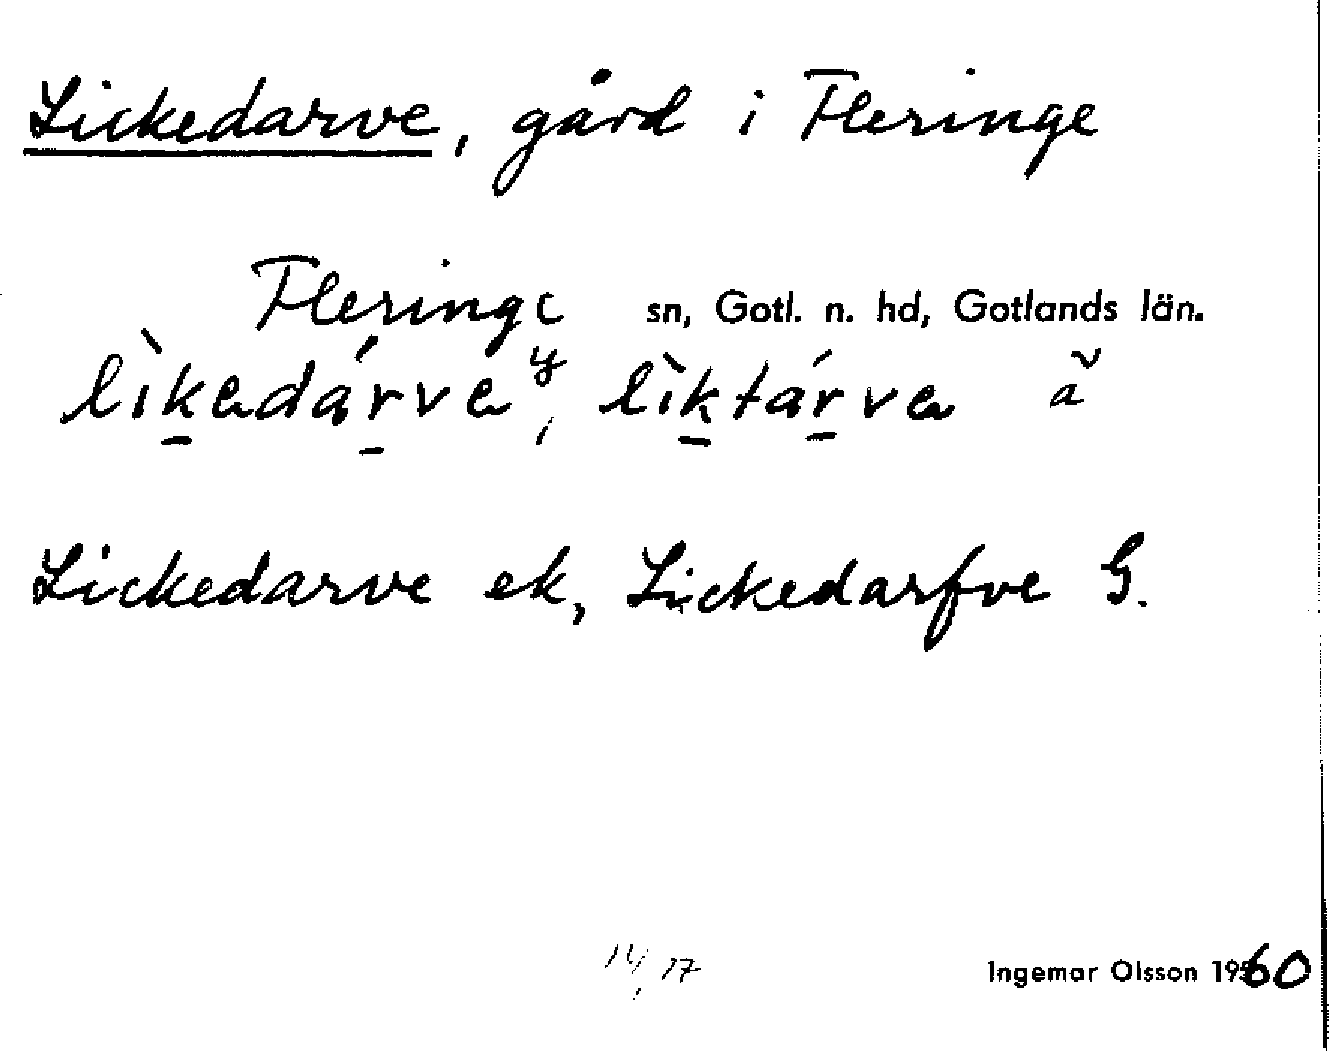 Lickedarve, gård i Fleringe
Fleringe sn, Gotl. n. hd, Gotlands län.
lìkedárve y, lìktárve ã
Lickedarve ek, Lickedarfve G.
14, 17
Ingemar Olsson 1960